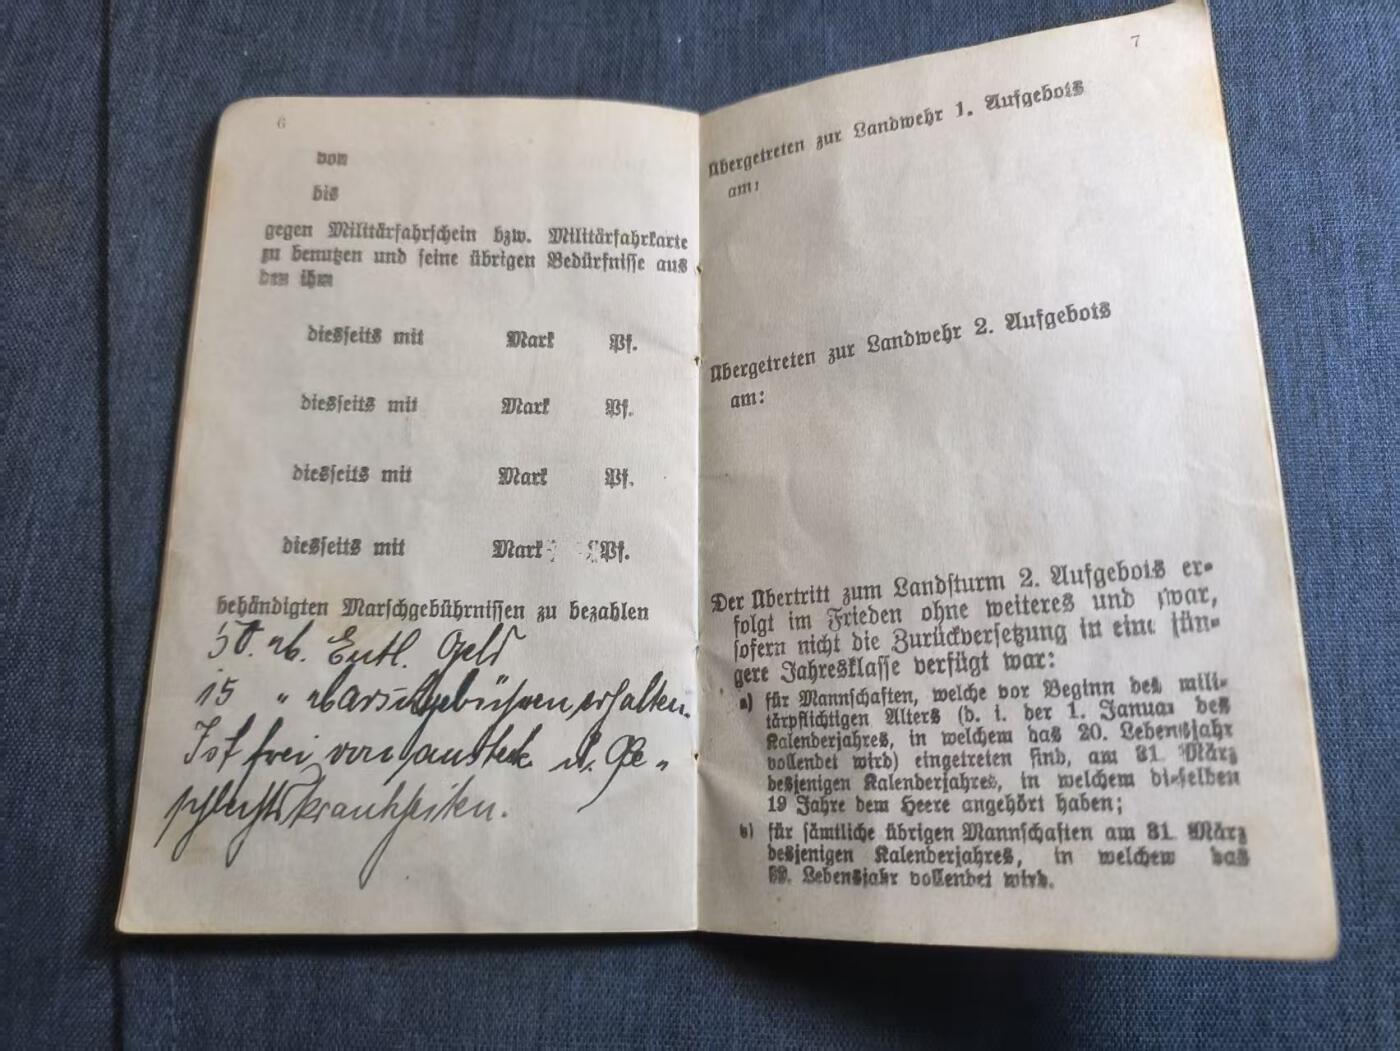 6
von
bis
gegen Militärfahrschein bzw. Militärfahrkarte
zu benutzen und seine übrigen Bedürfnisse aus
den ihm
diesseits mit Mark Pf.
diesseits mit Mark Pf.
diesseits mit Mark Pf.
diesseits mit Mark Pf.
behändigten Marschgebührnissen zu bezahlen
50. M. Entl. Geld
15 " Marschgebühren erhalten.
Ist frei von ansteck. u. Ge-
schlechtskrankheiten.
7
Übergetreten zur Landwehr 1. Aufgebots
am:
Übergetreten zur Landwehr 2. Aufgebots
am:
Der Übertritt zum Landsturm 2. Aufgebots er-
folgt im Frieden ohne weiteres und zwar,
sofern nicht die Zurückversetzung in eine jün-
gere Jahresklasse verfügt war:
a) für Mannschaften, welche vor Beginn des mili-
tärpflichtigen Alters (d. i. der 1. Januar des
Kalenderjahres, in welchem das 20. Lebensjahr
vollendet wird) eingetreten sind, am 31. März
desjenigen Kalenderjahres, in welchem dieselben
19 Jahre dem Heere angehört haben;
b) für sämtliche übrigen Mannschaften am 31. März
desjenigen Kalenderjahres, in welchem das
39. Lebensjahr vollendet wird.